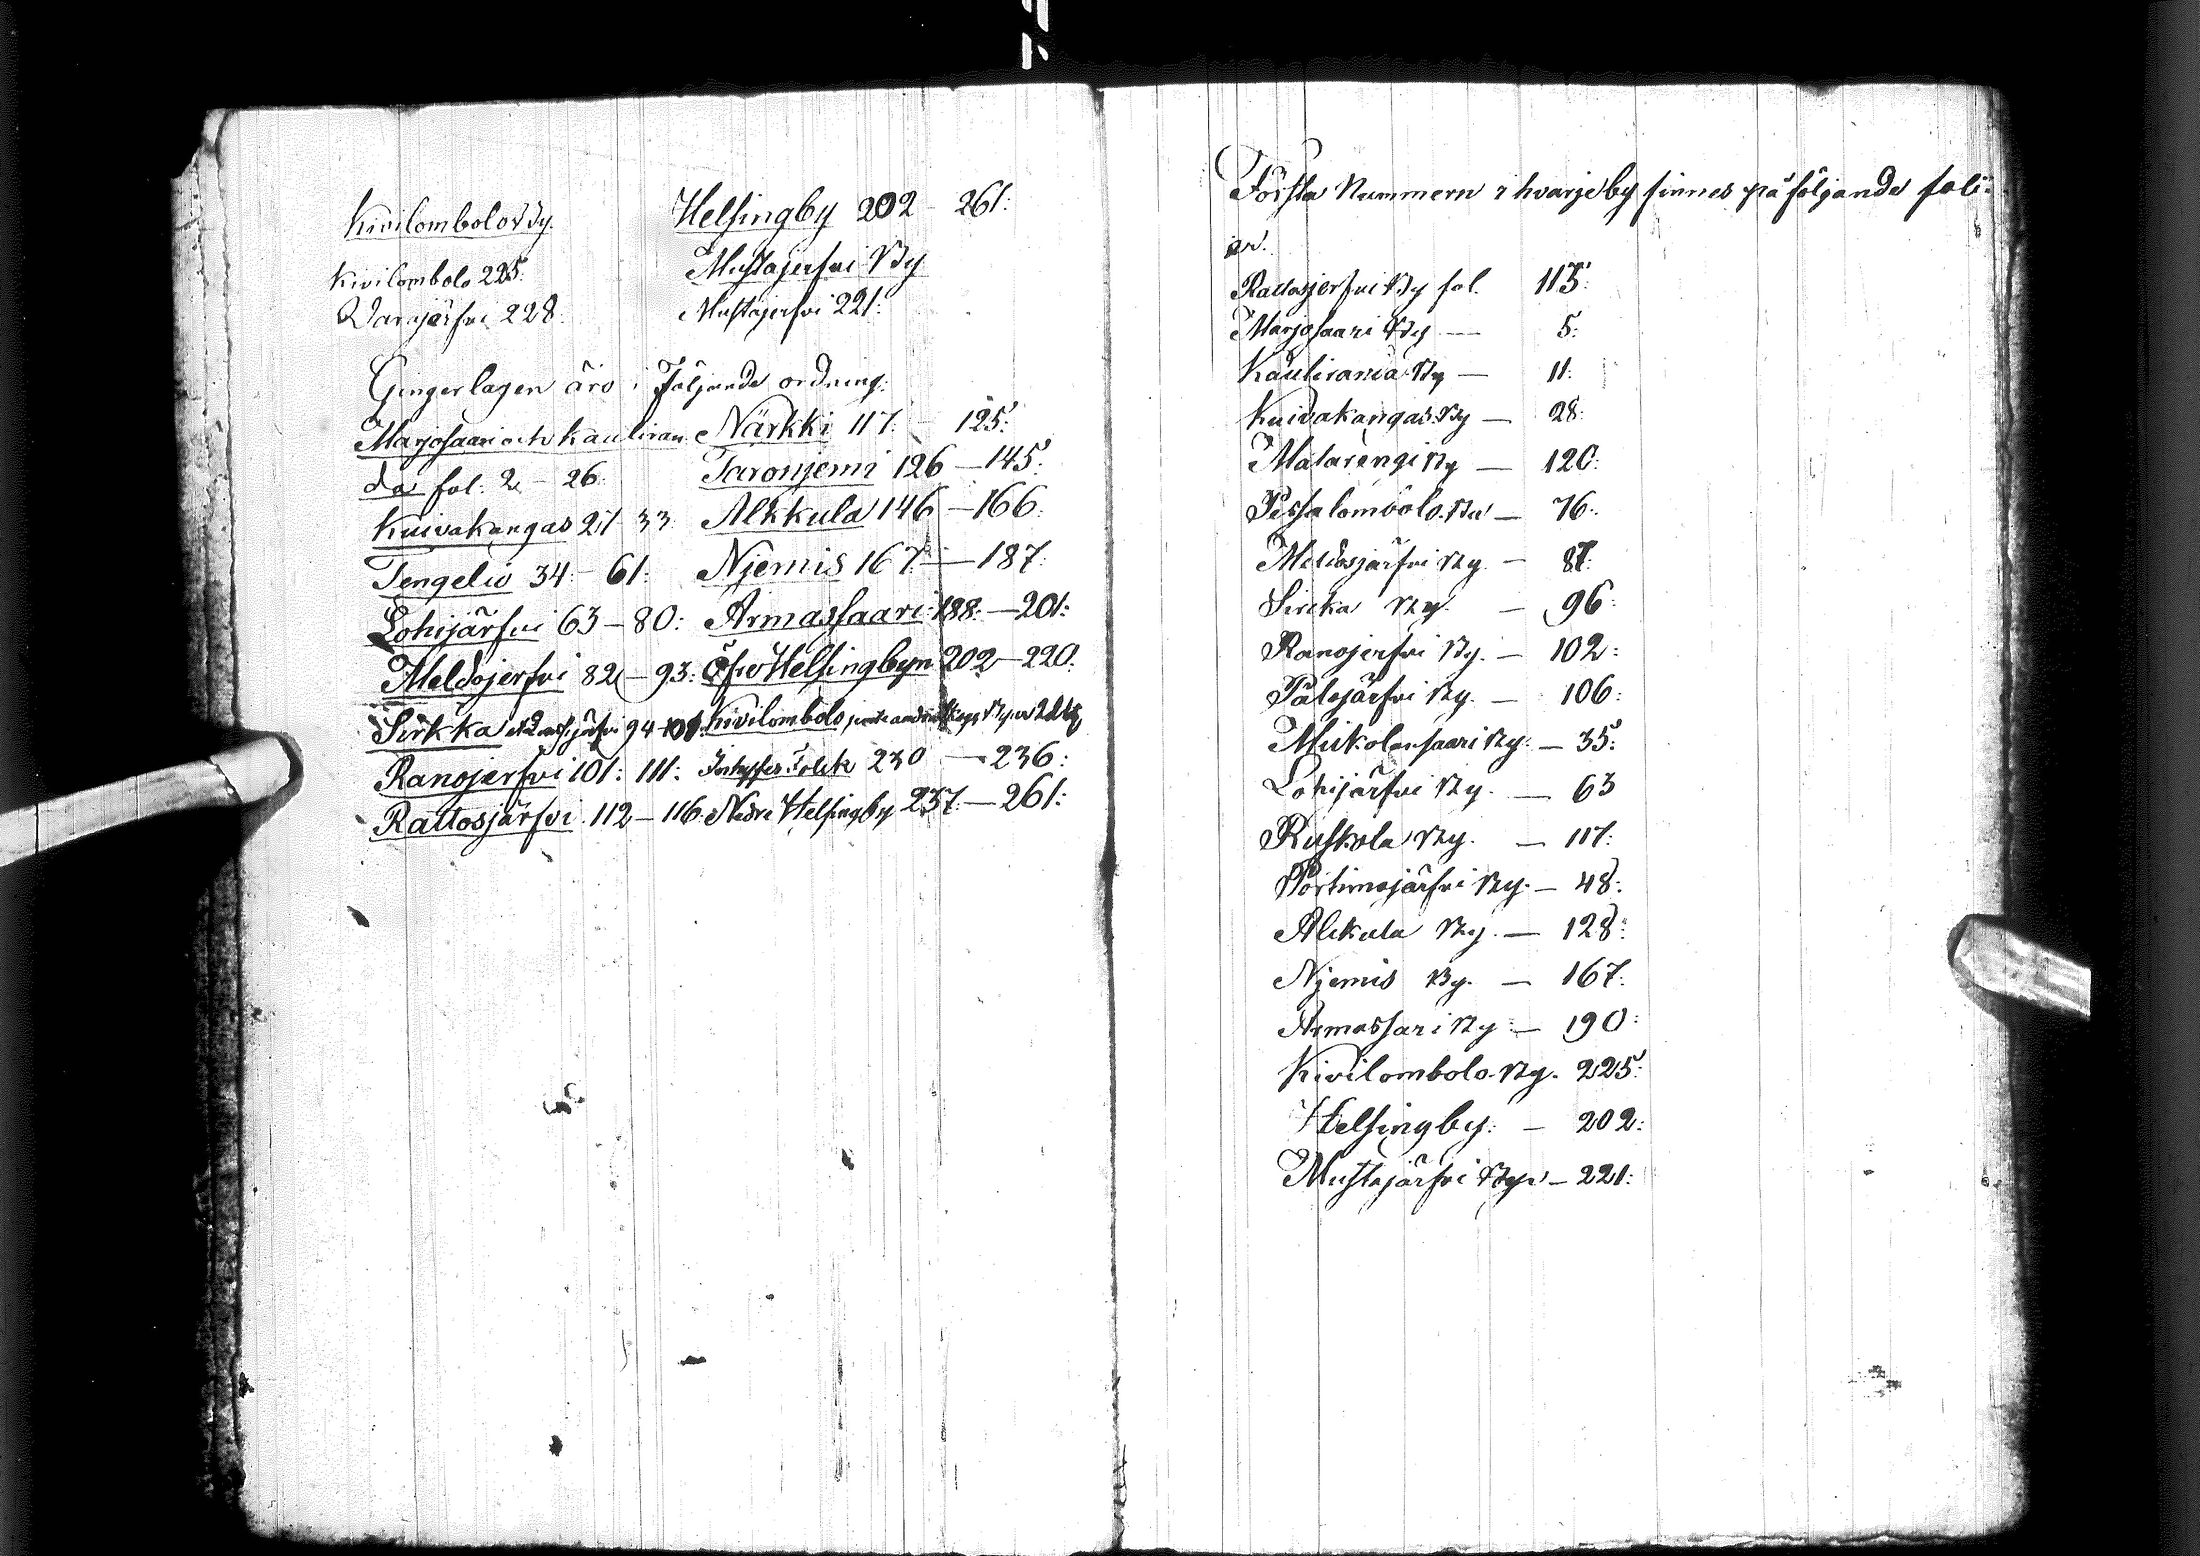 Kivilombolo By.
Kivilombolo 225:
Varajärfvi 228:
Helsingby 202 - 261:
Mustajerfvi By
Mustajerfvi 221:
Gingerlagen äro i Följande ordning:
Marjosaari och Kauliran
da fol: 2 - 26:
Kuivakangas 27 - 33:
Tengeliö 34 - 61:
Lohijärfvi 63 - 80:
Meldojerfvi 82 - 93:
Sirkka 94 -
Ranojerfvi 101: 111:
Rattosjärfvi 112 - 116
Närkki 117: - 125:
Taronjemi 126 - 145:
Alkkula 146 - 166:
Njemis 167: - 187:
Armassaari 188: - 201:
Öfre Helsingbyn 202 - 220:
Kivilombolo
Folck 230 - 236:
Nedre Helsingby 237: - 261:
Första Nummern i hvarje by finnes på följande foli-
er.
Rattosjerfvi By fol. 113:
Marjosaari By - 5:
Kaulirania By - 11:
Kuivakangas By - 28:
Matarengi By - 120:
Pessalombolo By - 76:
Meldosjärfvi By - 87:
Sircka By - 96:
Ranojerfvi By. - 102:
Palojärfvi By. - 106:
Miekolansaari By. - 35:
Lohijärfvi By. - 63
Ruskola By. - 117:
Portimojärfvi By. - 48:
Alckula By. - 128:
Njemis By. - 167:
Armassari By - 190:
Kivilombolo By. 225:
Helsingby: - 202:
Mustajärfvi By - 221: